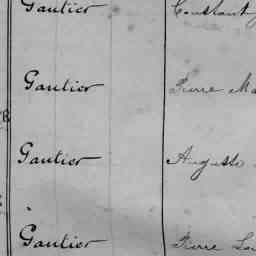 Gautier Constant
Gautier Pierre Ma
Gautier Auguste
Gautier Pierre Lou